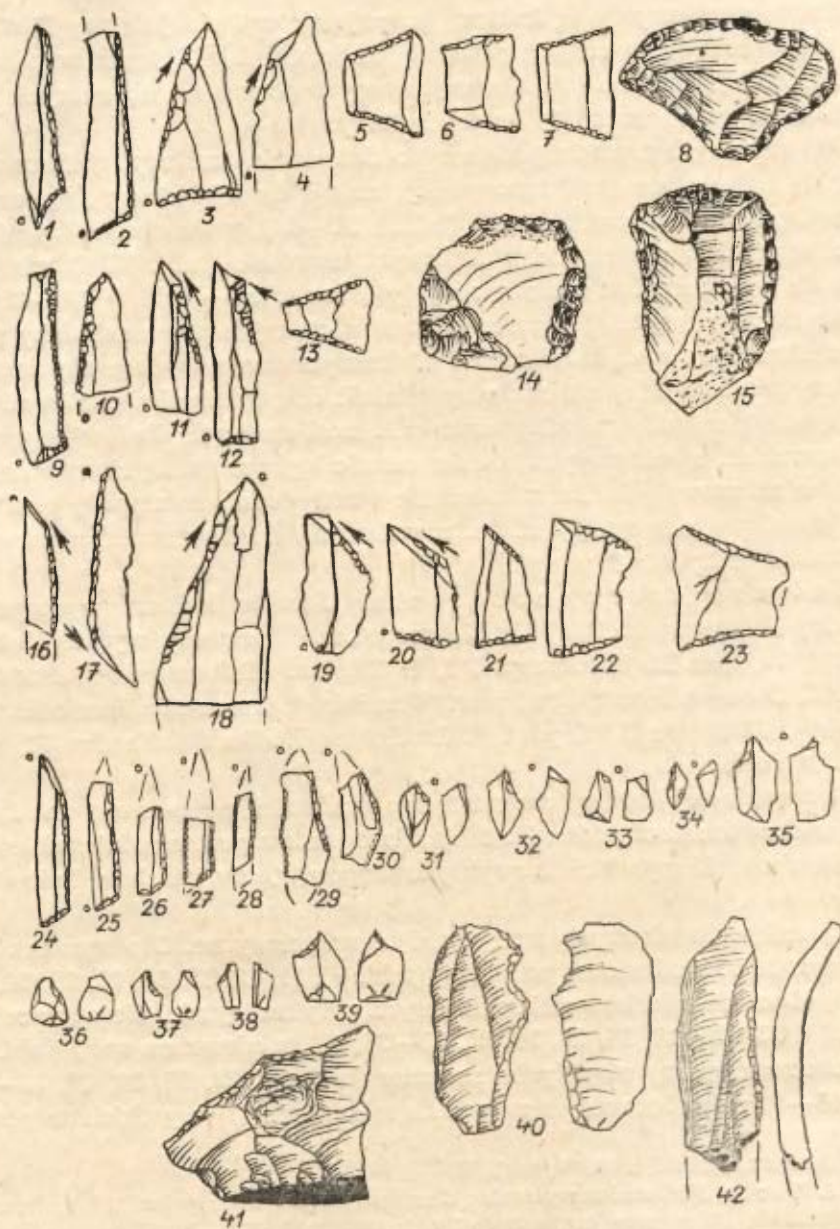 1 2 3 4 5 6 7 8
9 10 11 12 13 14 15
16 17 18 19 20 21 22 23
24 25 26 27 28 29 30 31 32 33 34 35
36 37 38 39 40
41 42